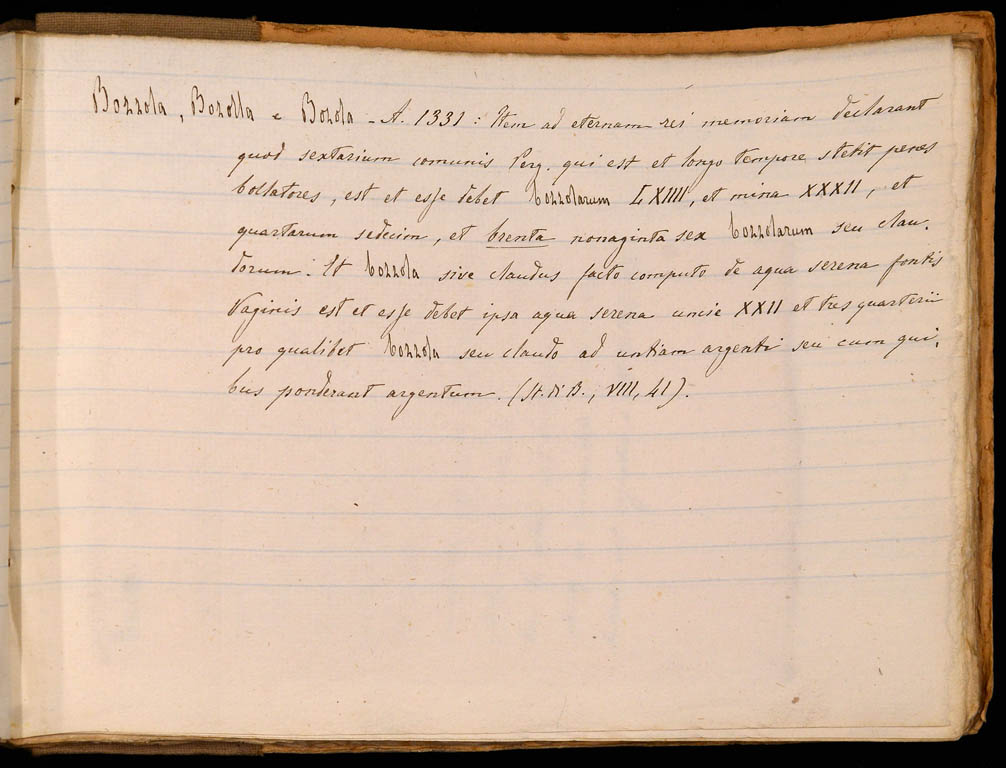 Bozzola, Bozolla e Bozola - A. 1331 : Item ad eternam rei memoriam declarant
quod sextarium comunis Perg. qui est et longo tempore stetit penes
bollatores, est et esse debet bozzolarum LXIIII, et mina XXXII, et
quartarum sedecim, et brenta nonaginta sex bozzolarum seu clau-
dorum: Et bozzola sive claudus facto computo de aqua serena fontis
Vaginis est et esse debet ipsa aqua serena uncie XXII et tres quarterii
pro qualibet bozzola seu claudo ad untiam argenti seu cum qui-
bus ponderant argentum. (St. di B., VIII, 41).